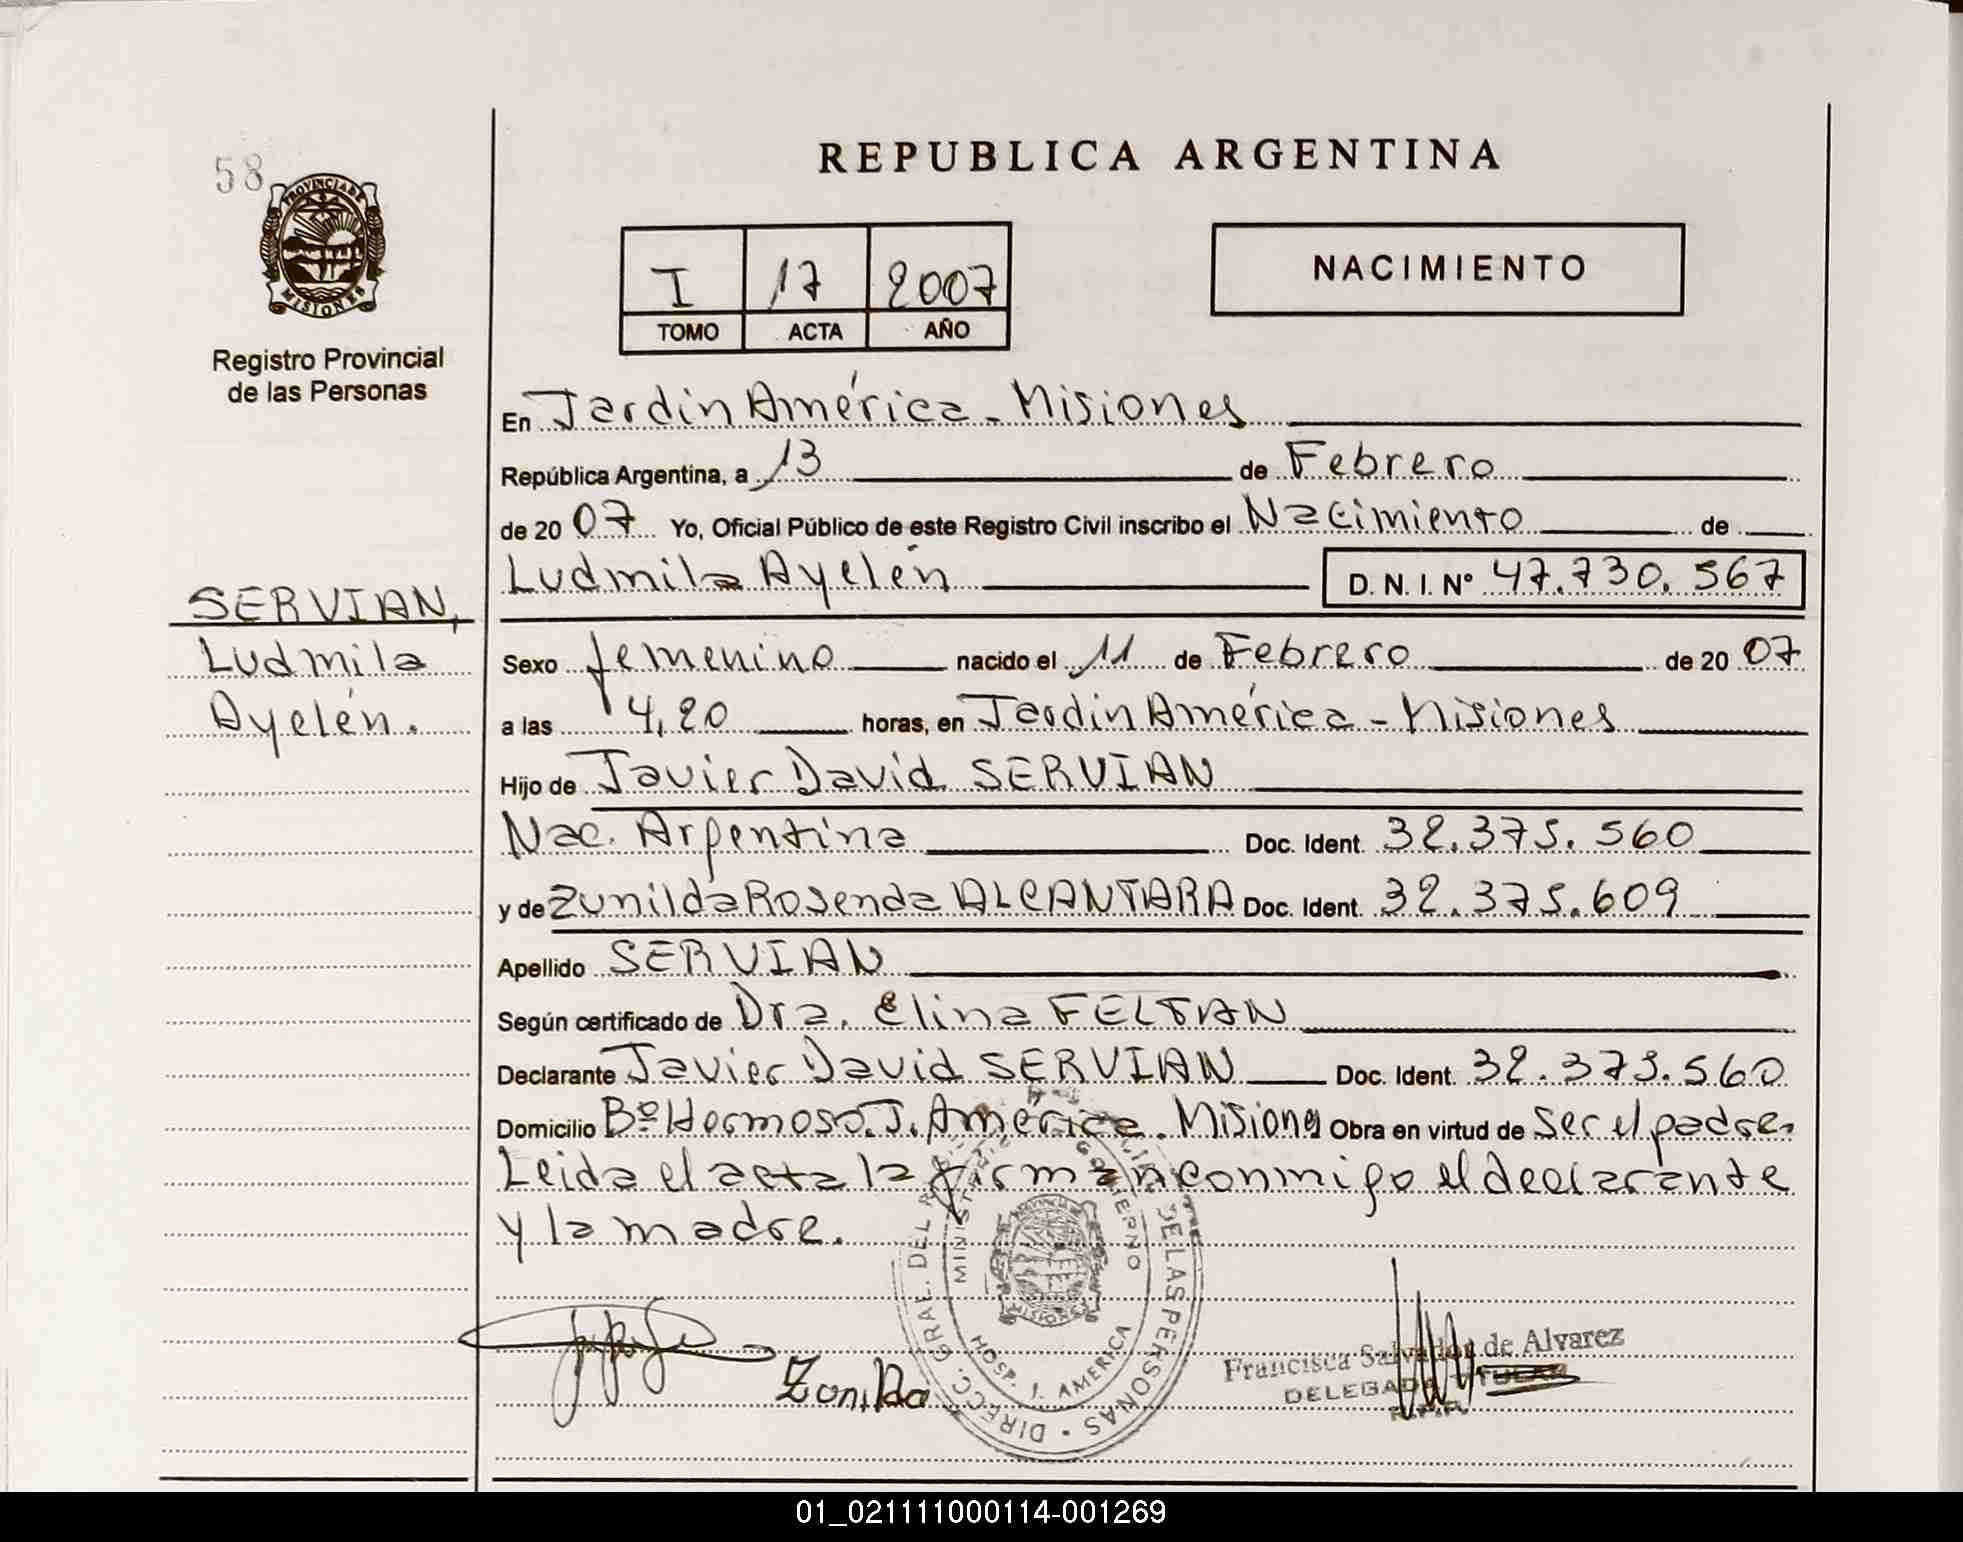 58
PROVINCIA DE
MISIONES
Registro Provincial
de las Personas
SERVIAN,
Ludmila
Ayelén.
REPUBLICA ARGENTINA
I 17 2007
TOMO ACTA AÑO
NACIMIENTO
En Jardín América - Misiones
República Argentina, a 13 de Febrero
de 20 07 Yo, Oficial Público de este Registro Civil inscribo el Nacimiento de
Ludmila Ayelén D. N. I. Nº 47.730.567
Sexo femenino nacido el 11 de Febrero de 20 07
a las 4,20 horas, en Jardín América - Misiones
Hijo de Javier David SERVIAN
Nac. Argentina Doc. Ident. 32.375.560
y de Zunilda Rosenda ALCANTARA Doc. Ident. 32.375.609
Apellido SERVIAN
Según certificado de Dra. Elina FELTAN
Declarante Javier David SERVIAN Doc. Ident. 32.375.560
Domicilio Bº Hermoso. J. América. Misiones Obra en virtud de ser el padre.
Leida el acta la firman conmigo el declarante
y la madre.
DIRECC. GRAL. DEL DE LAS PERSONAS
MINISTERIO GOBIERNO
MISIONES
HOSP. J. AMERICA
Zunilda
Francisca Salvador de Alvarez
DELEGADA TITULAR
R.P.P.
01_021111000114-001269